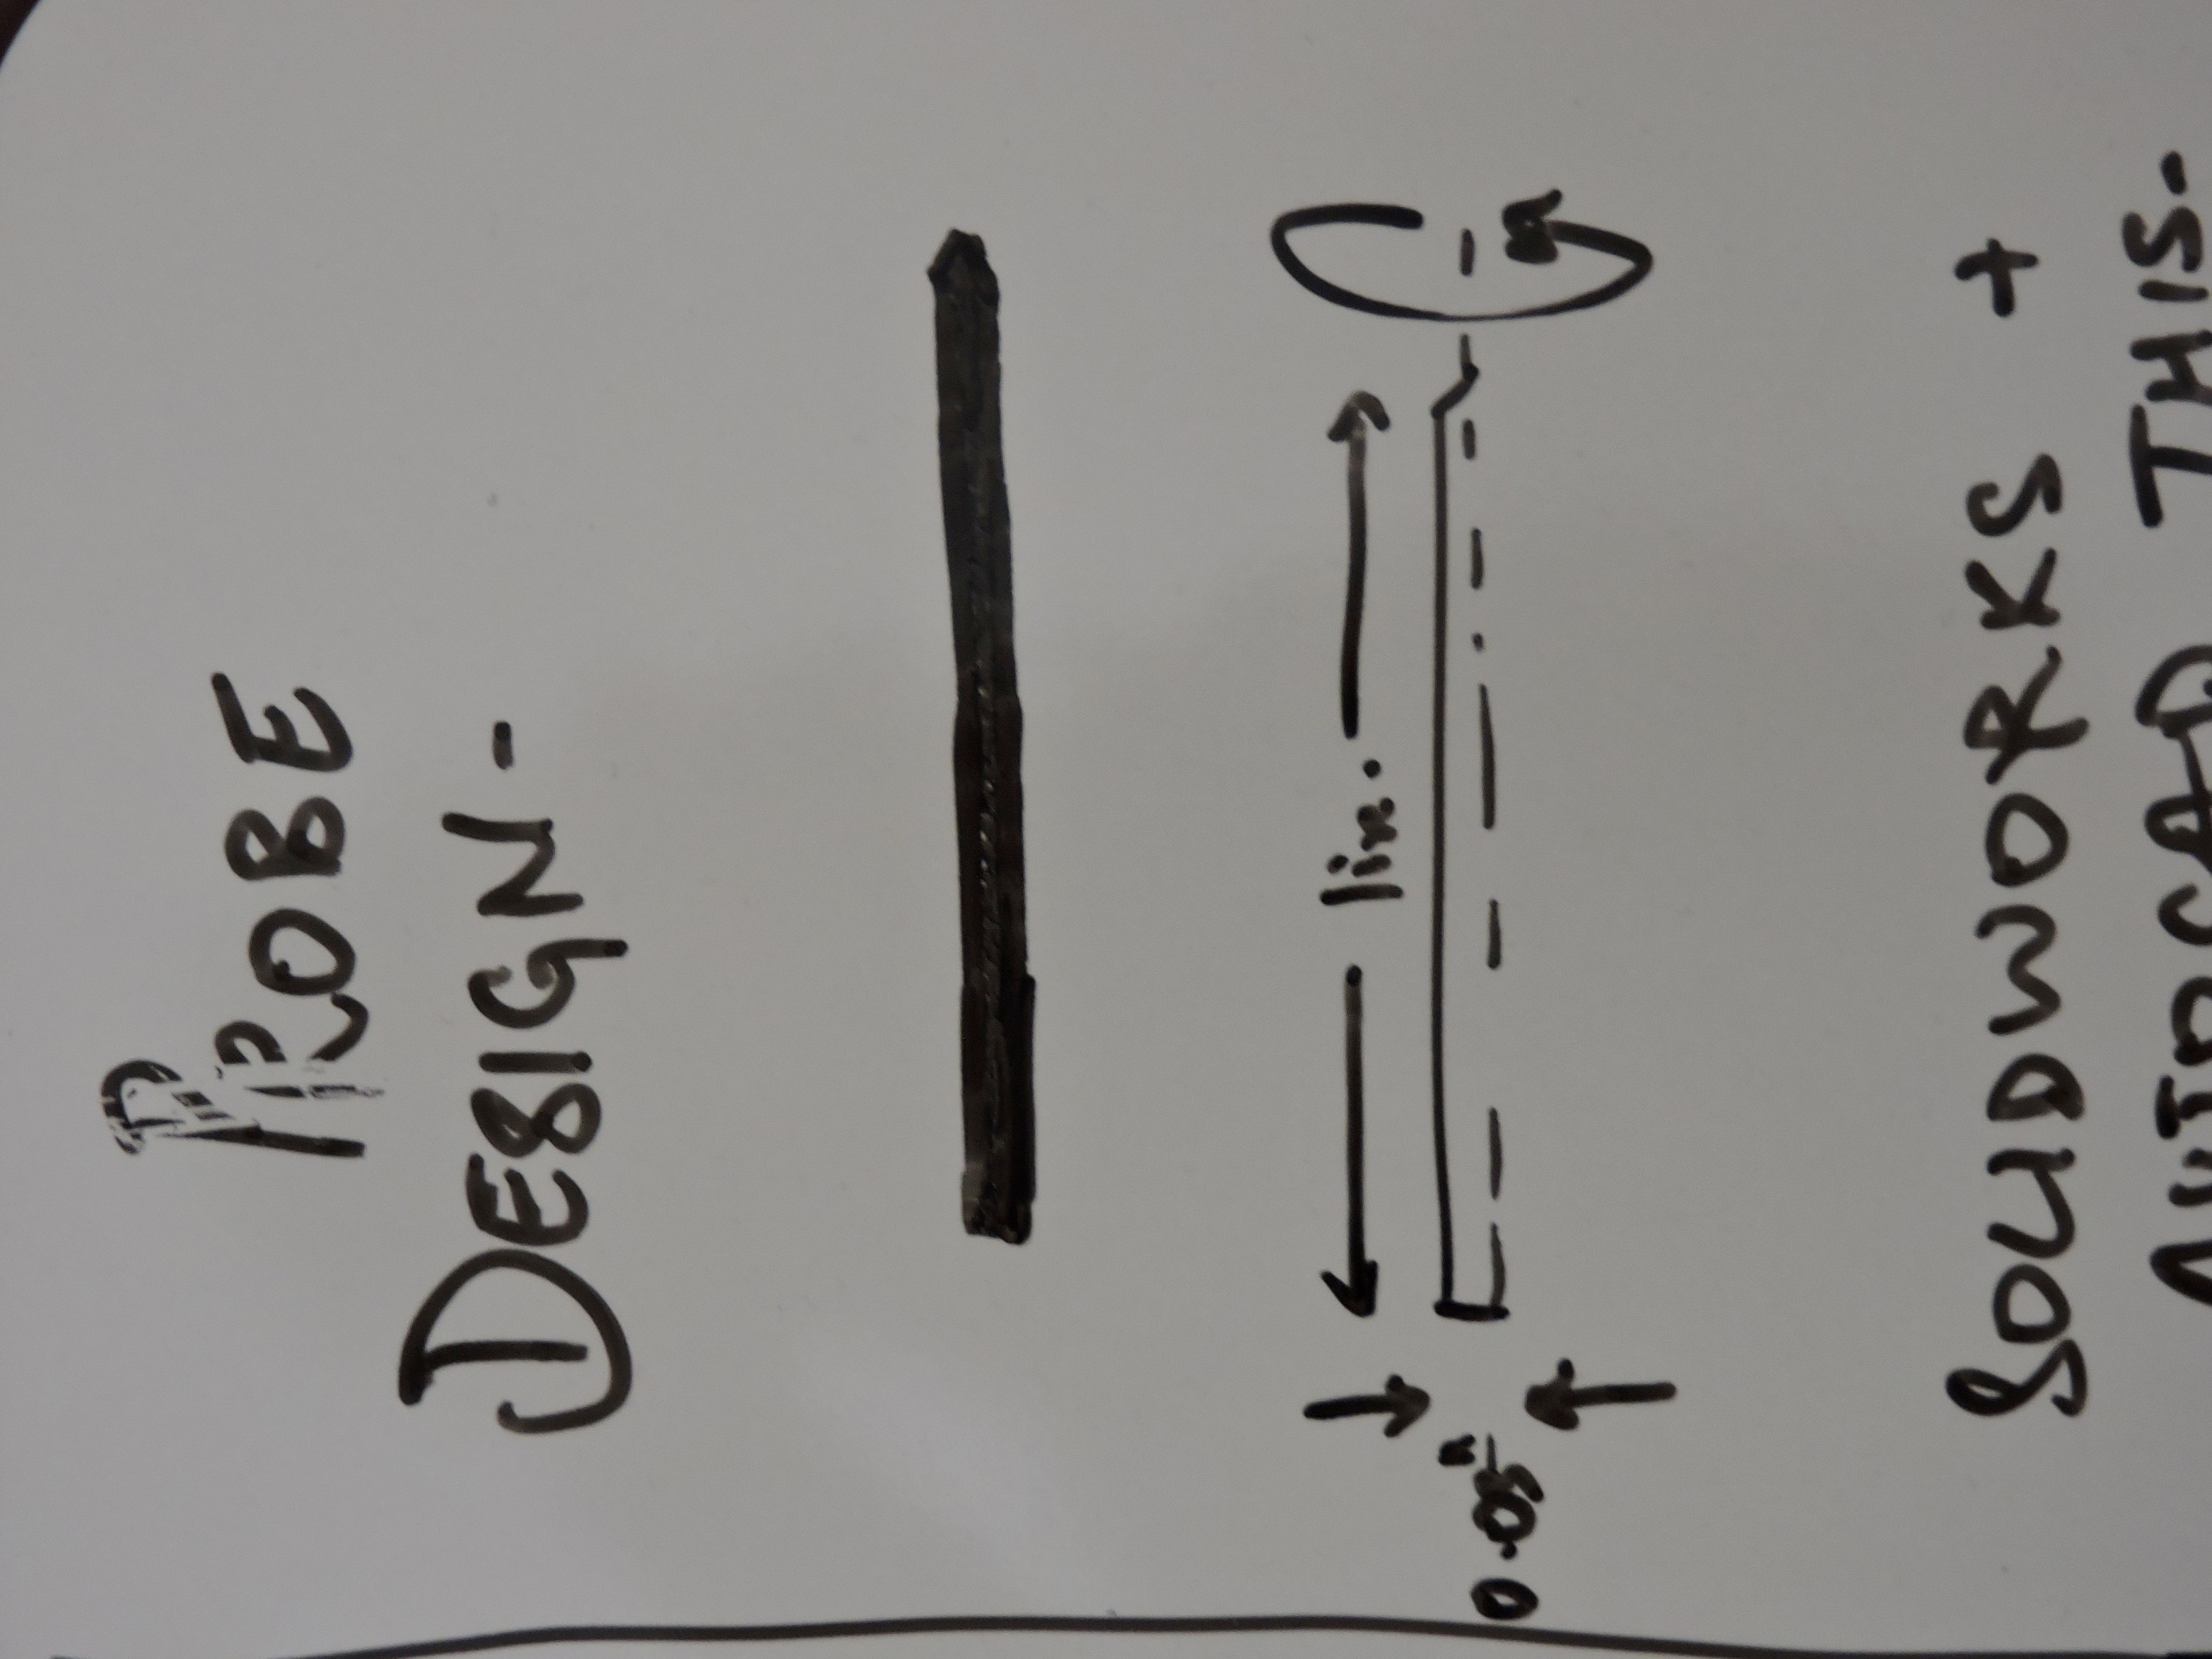 PROBE
DESIGN -
1in.
0.05"
SOLIDWORKS +
AUTOCAD THIS.